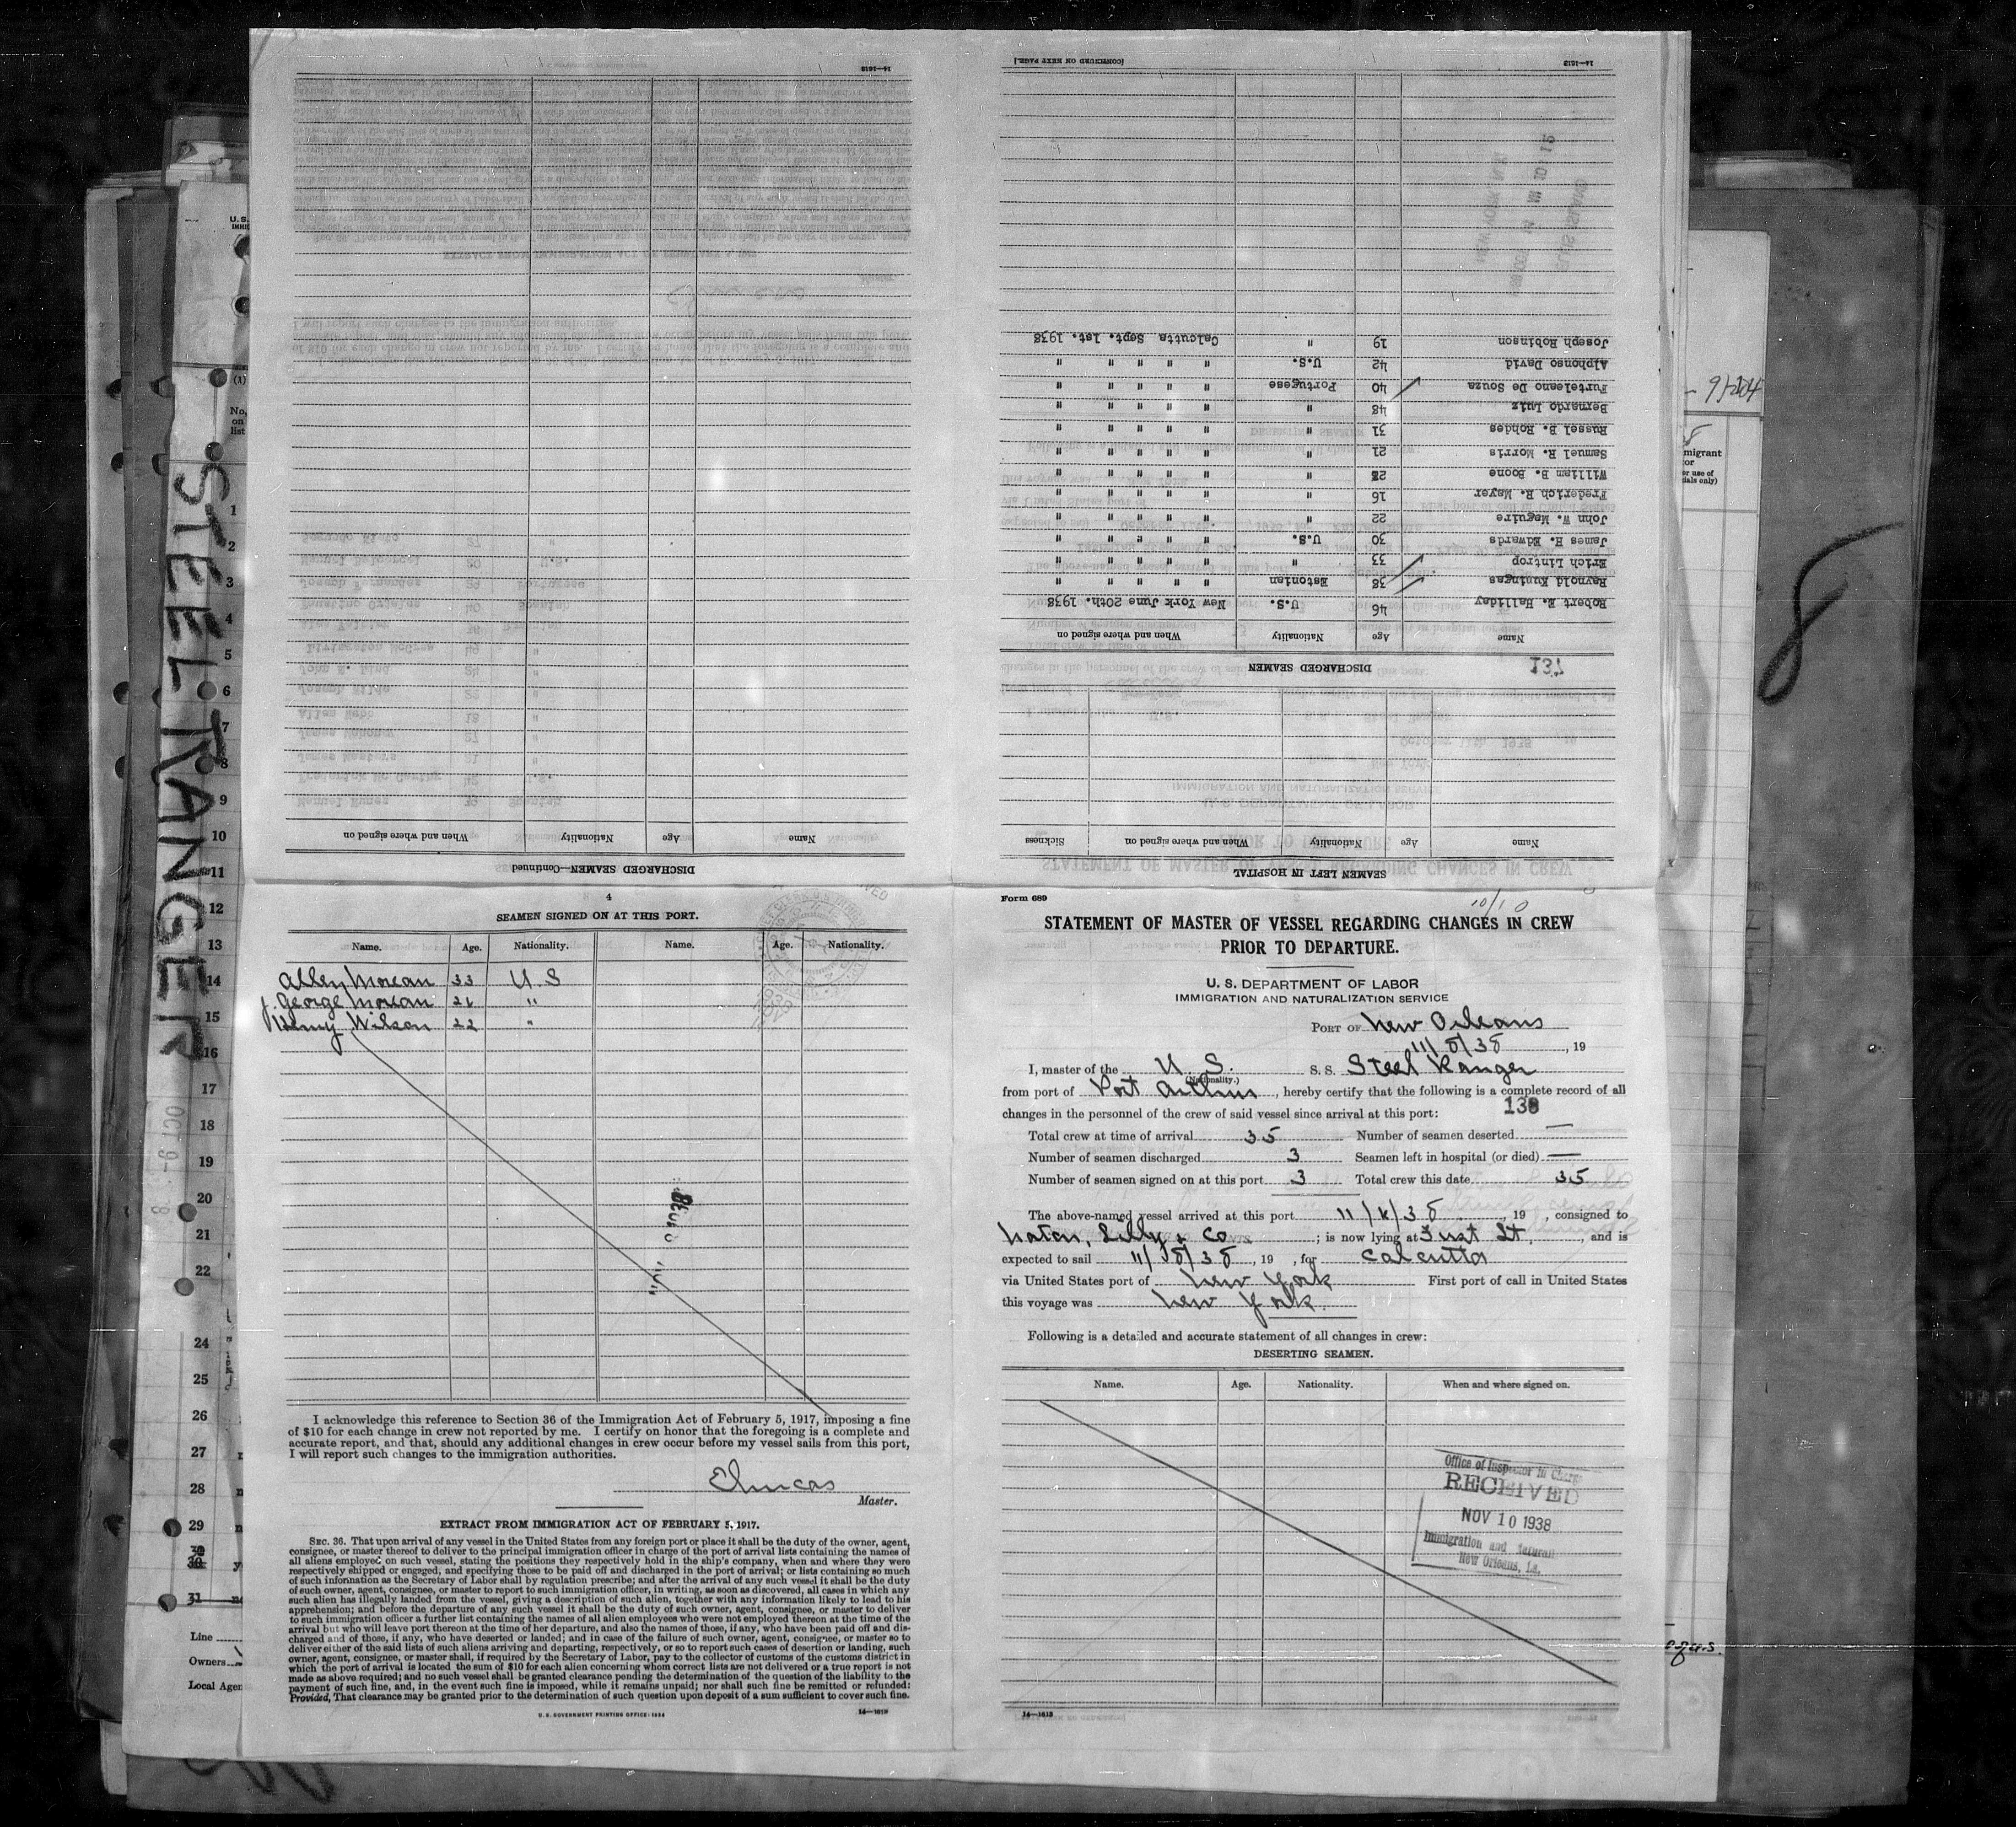 14—1613
[CONTINUED ON NEXT PAGE.]
14—1613
Joseph Robinson 19 " Calcutta Sept. 1st. 1938
Alphonso David 42 U.S. " " " " "
Furteleano De Souza 40 Portugese " " " " "
Bernardo Luiz 48 " " " " " "
Russel B. Rohdes 31 " " " " " "
Samuel R. Morris 21 " " " " " "
William B. Boone " " " " " "
Frederich R. Mayer 16 " " " " " "
John W. Maguire 22 " " " " " "
James H. Edwards 30 U.S. " " " " "
Erich Lintrop 33 " " " " " "
Raynold Kuningas 38 Estonian " " " " "
Robert E. Halliday 46 U.S. New York June 20th. 1938
Name Age Nationality When and where signed on
DISCHARGED SEAMEN
137
Name Age Nationality When and where signed on Sickness
SEAMEN LEFT IN HOSPITAL
Name Age Nationality When and where signed on
DISCHARGED SEAMEN—Continued
STEEL RANGER
8
4
SEAMEN SIGNED ON AT THIS PORT.
Name. Age. Nationality. Name. Age. Nationality.
Alley Morean 33 U.S
George Morean 21 "
Henry Wilson 22 "
I acknowledge this reference to Section 36 of the Immigration Act of February 5, 1917, imposing a fine
of $10 for each change in crew not reported by me. I certify on honor that the foregoing is a complete and
accurate report, and that, should any additional changes in crew occur before my vessel sails from this port,
I will report such changes to the immigration authorities.
Master.
EXTRACT FROM IMMIGRATION ACT OF FEBRUARY 5, 1917.
SEC. 36. That upon arrival of any vessel in the United States from any foreign port or place it shall be the duty of the owner, agent,
consignee, or master thereof to deliver to the principal immigration officer in charge of the port of arrival lists containing the names of
all aliens employed on such vessel, stating the positions they respectively hold in the ship's company, when and where they were
respectively shipped or engaged, and specifying those to be paid off and discharged in the port of arrival; or lists containing so much
of such information as the Secretary of Labor shall by regulation prescribe; and after the arrival of any such vessel it shall be the duty
of such owner, agent, consignee, or master to report to such immigration officer, in writing, as soon as discovered, all cases in which any
such alien has illegally landed from the vessel, giving a description of such alien, together with any information likely to lead to his
apprehension; and before the departure of any such vessel it shall be the duty of such owner, agent, consignee, or master to deliver
to such immigration officer a further list containing the names of all alien employees who were not employed thereon at the time of the
arrival but who will leave port thereon at the time of her departure, and also the names of those, if any, who have been paid off and dis-
charged and of those, if any, who have deserted or landed; and in case of the failure of such owner, agent, consignee, or master so to
deliver either of the said lists of such aliens arriving and departing, respectively, or so to report such cases of desertion or landing, such
owner, agent, consignee, or master shall, if required by the Secretary of Labor, pay to the collector of customs of the customs district in
which the port of arrival is located the sum of $10 for each alien concerning whom correct lists are not delivered or a true report is not
made as above required; and no such vessel shall be granted clearance pending the determination of the question of the liability to the
payment of such fine, and, in the event such fine is imposed, while it remains unpaid; nor shall such fine be remitted or refunded:
Provided, That clearance may be granted prior to the determination of such question upon deposit of a sum sufficient to cover such fine.
U. S. GOVERNMENT PRINTING OFFICE: 1934
14—1613
Form 689
10/10
STATEMENT OF MASTER OF VESSEL REGARDING CHANGES IN CREW
PRIOR TO DEPARTURE.
U. S. DEPARTMENT OF LABOR
IMMIGRATION AND NATURALIZATION SERVICE
PORT OF New Orleans
11/8/38, 19
I, master of the U. S. S. S. Steel Ranger
(Nationality.)
from port of Port Arthur, hereby certify that the following is a complete record of all
changes in the personnel of the crew of said vessel since arrival at this port:
138
Total crew at time of arrival 35 Number of seamen deserted —
Number of seamen discharged 3 Seamen left in hospital (or died) —
Number of seamen signed on at this port 3 Total crew this date 35
The above-named vessel arrived at this port 19 , consigned to
Norton, Lilly & Co ; is now lying at First St, , and is
expected to sail 11/ 8/38, 19 , for Calcutta
via United States port of New York First port of call in United States
this voyage was New York.
Following is a detailed and accurate statement of all changes in crew:
DESERTING SEAMEN.
Name. Age. Nationality. When and where signed on.
Office of Inspector in Charge
RECEIVED
NOV 10 1938
Immigration and Natural
New Orleans, La.
14—1613
1
2
3
4
5
6
7
8
9
10
11
12
13
14
15
16
17
18
19
20
21
22
24
25
26
27
28
29
30
31
Line
Owners
Local Agen